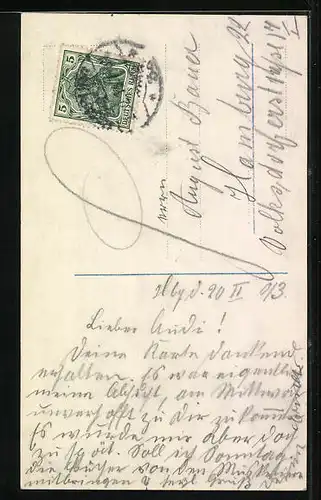 5
5
DEUTSCHES REICH
Herrn
August Bauer
Hamburg 22
Volksdorferstr.
Hbg d. 20 II 13.
Lieber Audi!
Deine Karte dankend
erhalten. Es war eigentlich
meine Absicht, am Mittwoch
unverhofft zu Dir zu kommen
Es wurde mir aber doch
zu spät. Soll ich Sonntag
die Bücher von den
mitbringen? Gruß